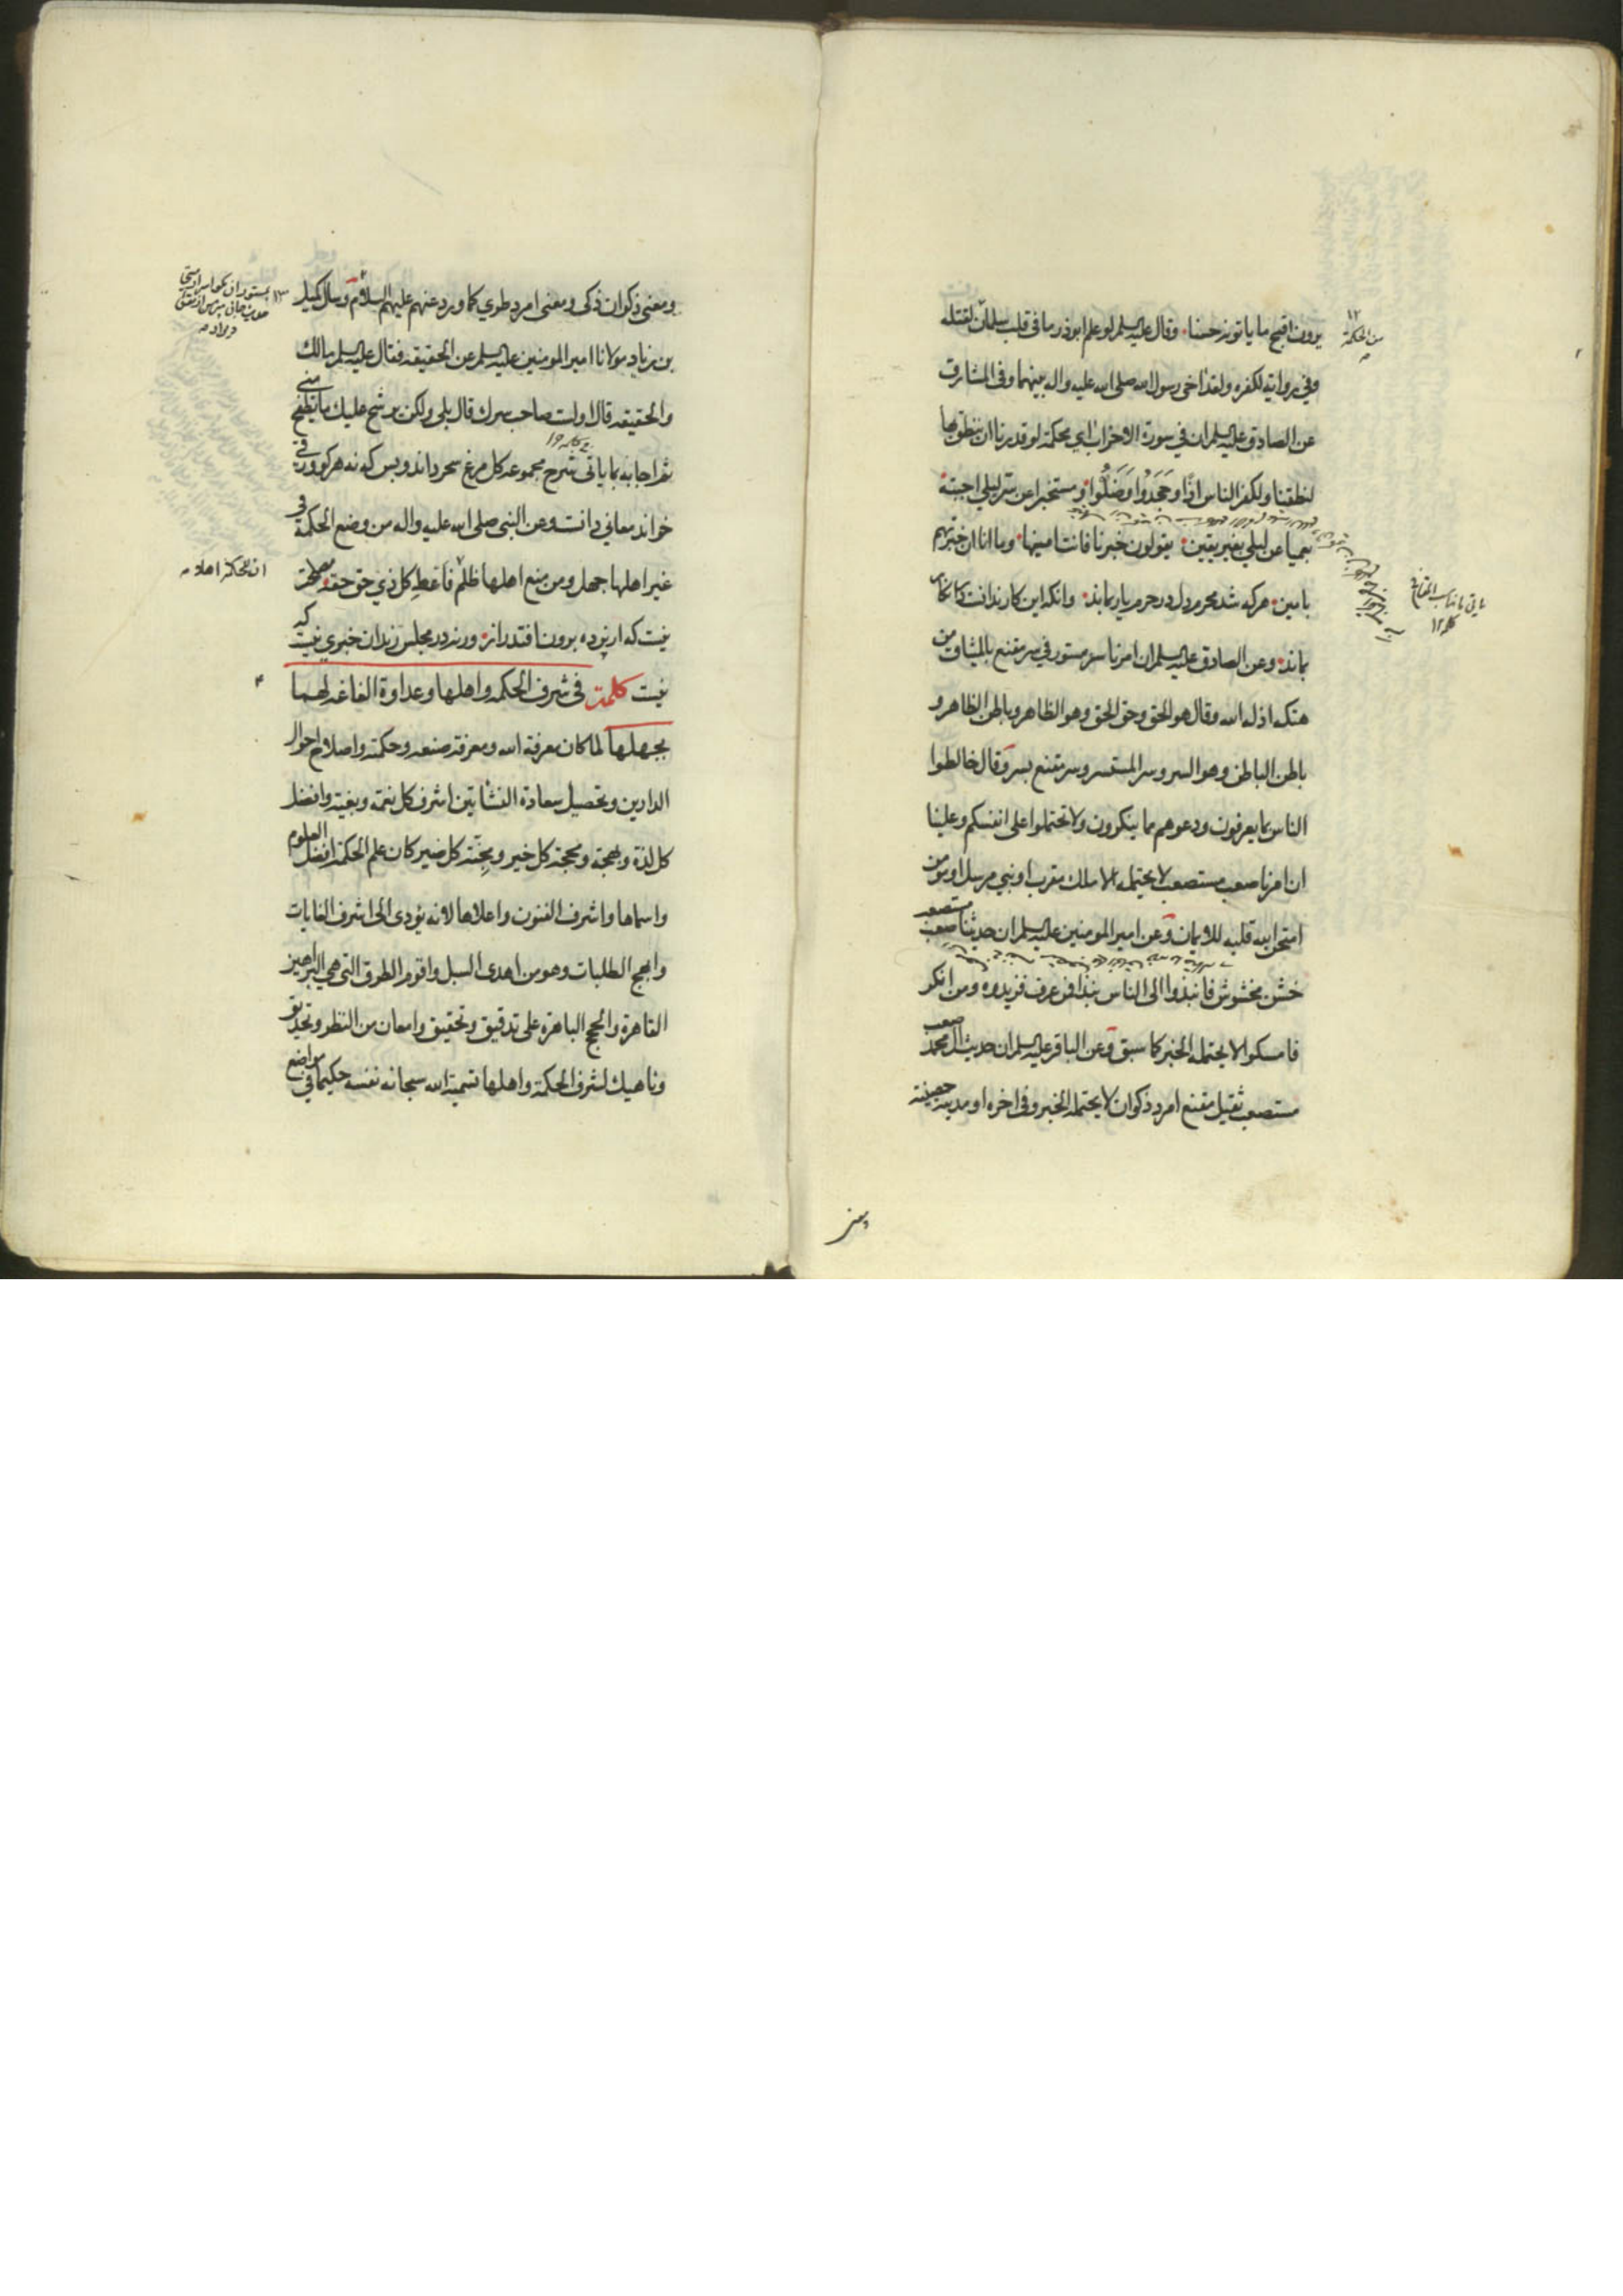 يرون اقبح ما ياتونه حسنا وقال عليه السلم لو علم ابوذر ما في قلب سلمان لقتله
وفي رواية لكفره ولقد اخى رسول الله صلى الله عليه واله بينهما وفي المشارق
عن الصادق عليه السلم ان في سورة الاحزاب اي محكمة لو قدرنا ان ننطق بها
لنطقنا ولكفر الناس اذا وجحدوا وضلوا ومستخبر عن سر ليلى اجبته
بعميا عن ليلى بغير يقين يقولون خبرنا فانت امينها وما انا ان خبرتهم
بامين هركه شد محرم دل در حرم يار بماند وانكه اين كار ندانست در انكار
بماند وعن الصادق عليه السلم ان امرنا سر مستور في سر مقنع بالميثاق من
هتكه اذله الله وقال هو الحق وحق الحق وهو الظاهر وباطن الظاهر و
باطن الباطن وهو السر وسر المستسر وسر مقنع بسر وقال خالطوا
الناس بما يعرفون ودعوهم مما ينكرون ولا تحتملوا على انفسكم وعلينا
ان امرنا صعب مستصعب لا يحتمله الا ملك مقرب او نبي مرسل او مؤمن
امتحن الله قلبه للايمان وعن امير المومنين عليه السلم ان حديثنا صعب مستصعب
خشن مخشوش فانبذوا الى الناس نبذا فمن عرف فزيدوه ومن انكر
فامسكوا لا يحتمله الخبر كما سبق وعن الباقر عليه السلم ان حديث ال محمد صعب
مستصعب ثقيل مقنع امرد ذكوان لا يحتمله الخبر وفي اخره او مدينة حصينة
١٢
من الحكمة
ومعنى ذكوان ذكى ومعنى امرد طوي كما ورد عنهم عليهم السلام وسال كميل
بن زياد مولانا امير المومنين عليه السلم عن الحقيقه فقال عليه السلم مالك
والحقيقه قال اولست صاحب سرك قال بلى ولكن يرشح عليك ما يطفح مني
ثم اجابه بما ياتي شرح مجموعه كل مرغ سحر داند وبس كه نه هركو ورقي
خواند معاني دانست وعن النبي صلى الله عليه واله من وضع الحكمة في
غير اهلها جهل ومن منع اهلها ظلم فاعط كل ذي حق حقه مصلحت
نيست كه از پرده برون افتد راز ورنه در مجلس رندان خبري نيست كه
نيست كلمة في شرف الحكمه واهلها وعداوة الفاغه لهما
بجهلها لما كان معرفة الله ومعرفة صنعه وحكمته واصلاح احوال
الدارين وتحصيل سعادة النشاتين اشرف كل نعمة وبغية وافضل
كل لذة وبهجة ومحجة كل خير ومجنة كل ضير كان علم الحكمة افضل العلوم
واسماها واشرف الفنون واعلاها لانه يؤدى الى اشرف الغايات
وابهج الطلبات وهو من اهدى السبل واقوم الطرق التي هي البراهين
القاهرة والحجج الباهرة على تدقيق وتحقيق وامعان من النظر وتحديق
وناهيك لشرف الحكمة واهلها تسمية الله سبحانه نفسه حكيما في مواضع